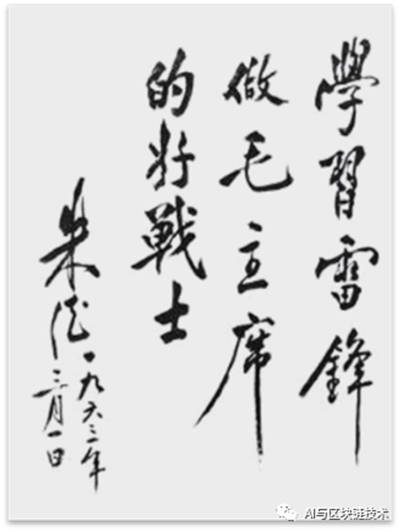 學習雷鋒
做毛主席
的好戰士
朱德
一九六三年
三月一日
AI与区块链技术